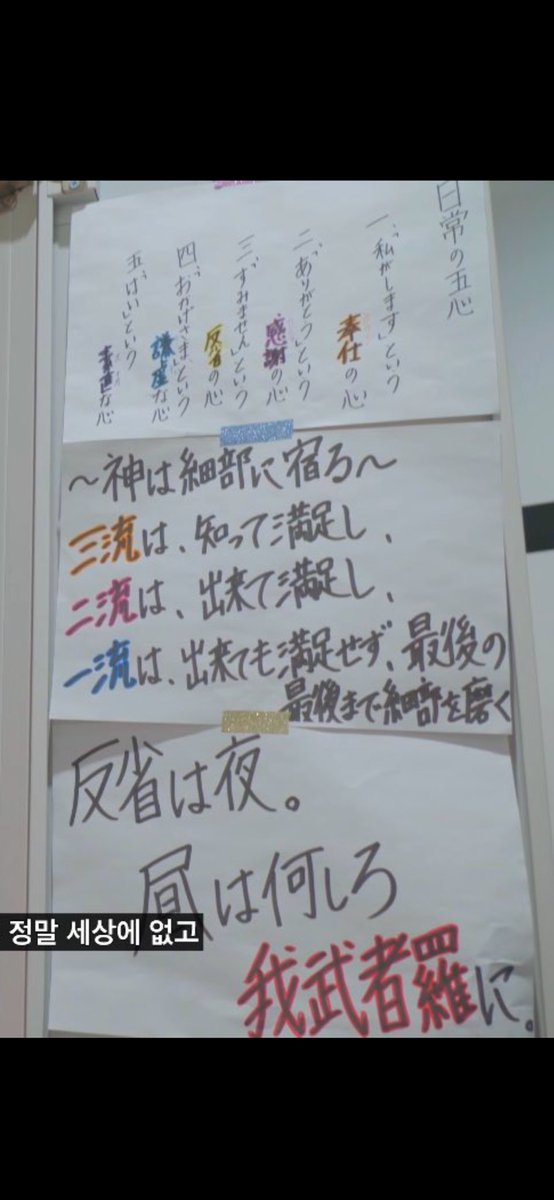 日常の五心
一、「私がします」という
奉仕の心
二、「ありがとう」という
感謝の心
三、「すみません」という
反省の心
四、「おかげさま」という
謙虚な心
五、「はい」という
素直な心
～神は細部に宿る～
三流は、知って満足し、
二流は、出来て満足し、
一流は、出来ても満足せず、最後の
最後まで細部を磨く
反省は夜。
昼は何しろ
我武者羅に。
정말 세상에 없고